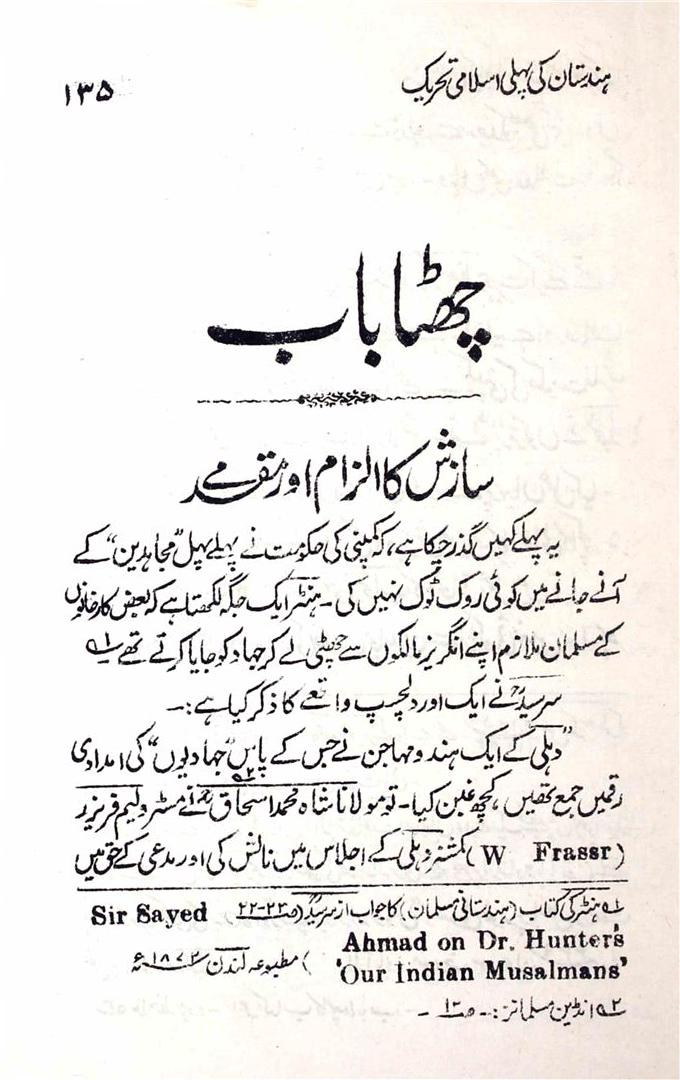 ہندستان کی پہلی اسلامی تحریک
۱۳۵
چھٹا باب
سازش کا الزام اور مقدمے
یہ پہلے کہیں گذر چکا ہے، کہ کمپنی کی حکومت نے پہلے پہل "مجاہدین" کے
آنے جانے میں کوئی روک ٹوک نہیں کی۔ ہنٹر ایک جگہ لکھتا ہے کہ بعض کارخانوں
کے مسلمان ملازم اپنے انگریز مالکوں سے چھٹی لے کر جہاد کو جایا کرتے تھے ؎۱
سرسیدؒ نے ایک اور دلچسپ واقعے کا ذکر کیا ہے:۔
"دہلی کے ایک ہندو مہاجن نے جس کے پاس "جہادیوں" کی امدادی
رقمیں جمع تھیں، کچھ غبن کیا۔ تو مولانا شاہ محمد اسحاقؒ ؎۲ نے مسٹر ولیم فریزر
(W Frassr) کمشنر دہلی کے اجلاس میں نالش کی اور مدعی کے حق میں
؎۱ ہنٹر کی کتاب (ہندستانی مسلمان) کا جواب از سرسیدؒ (ص ۲۳-۲۲ Sir Sayed
Ahmad on Dr. Hunter's
'Our Indian Musalmans') مطبوعہ لندن ۱۸۷۲ء
؎۲ انڈین مسلمانز:۔ ص ۱۲ ۔